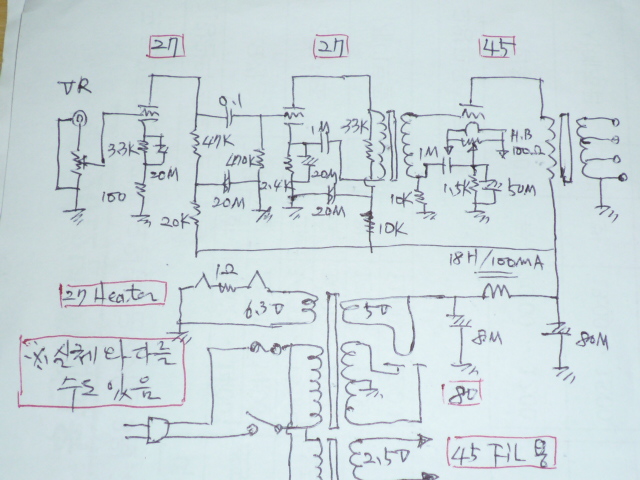 27
27
45
VR
0.1
33K
20M
100
47K
470K
20M
20K
2.4K
1M
20M
20M
33K
10K
1M
10K
1.5K
50M
H.B
100Ω
18H/100mA
27 Heater
1Ω
6.3V
5V
8M
80M
※ 실제와 다를
수도 있음
80
2.5V
45 FIL 용